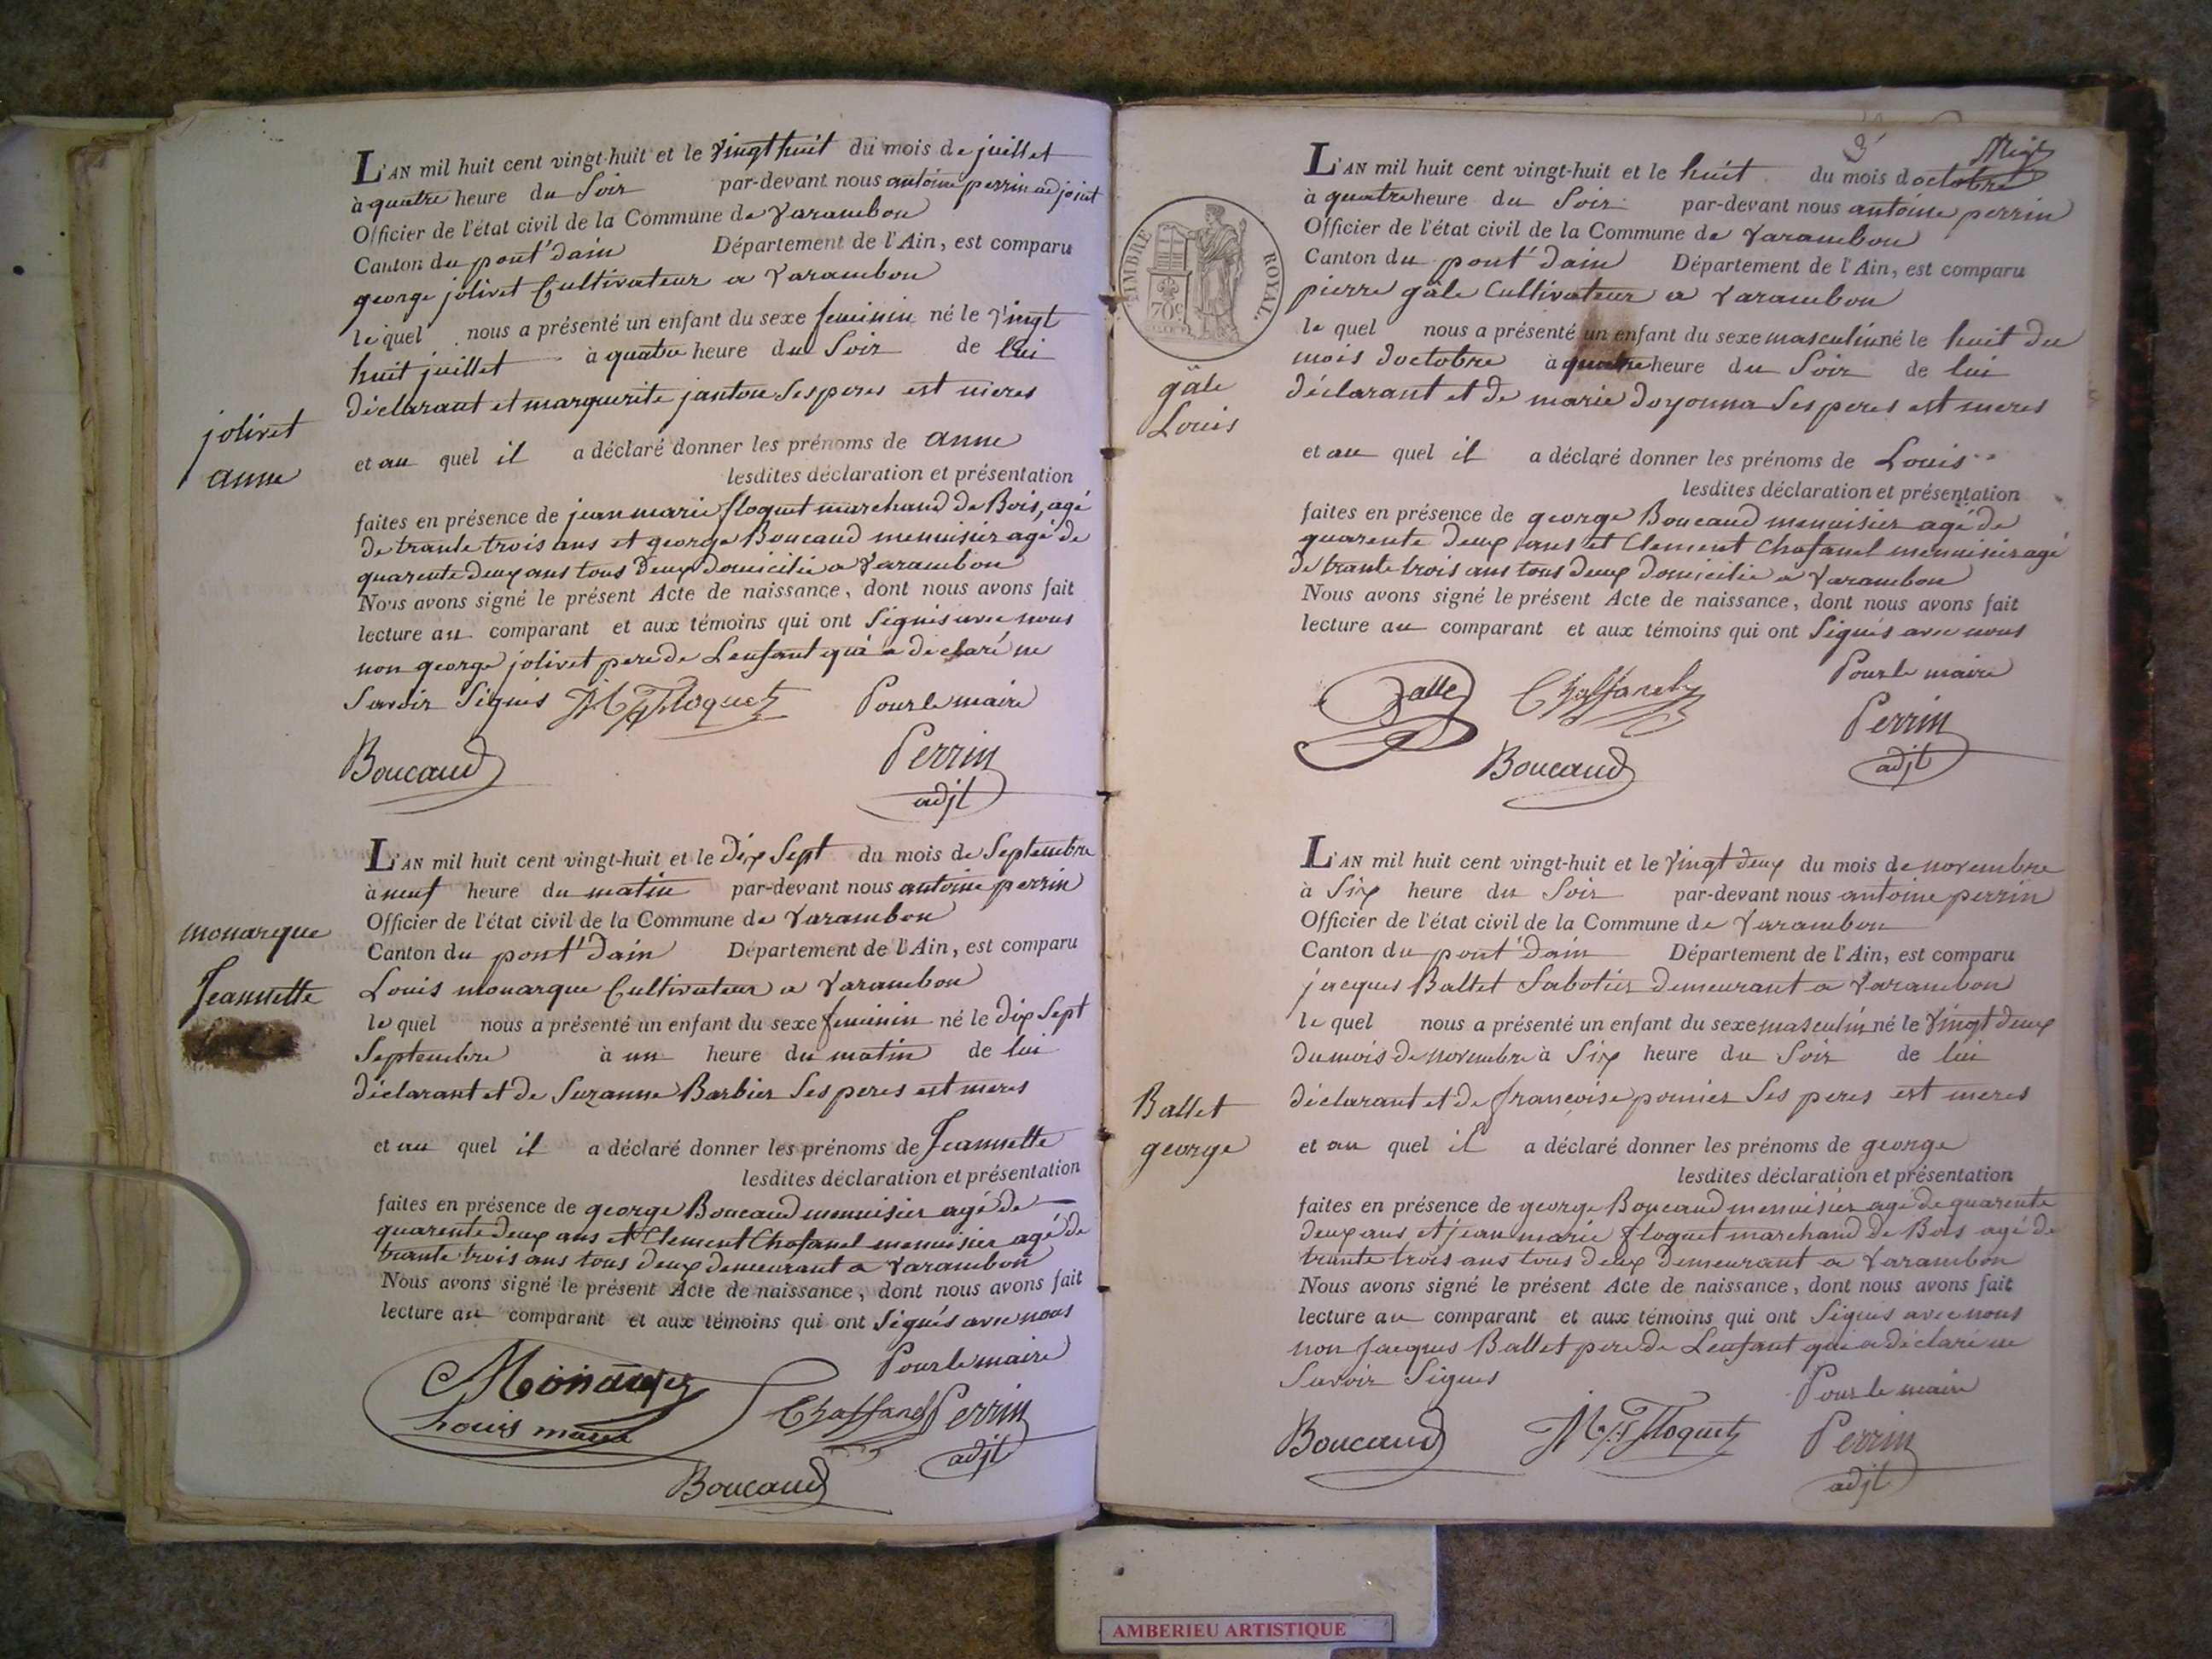 L'AN mil huit cent vingt-huit et le vingt huit du mois de juillet
à quatre heure du Soir par-devant nous antoine perrin adjoint
Officier de l'état civil de la Commune de varambon
Canton du pont d'ain Département de l'Ain, est comparu
george jolivet Cultivateur a varambon
le quel nous a présenté un enfant du sexe feminin né le vingt
huit juillet à quatre heure du Soir de lui
déclarant et marguerite janton Ses peres est meres
jolivet
anne
et au quel il a déclaré donner les prénoms de anne
lesdites déclaration et présentation
faites en présence de jean marie floquet marchand de Bois, agé
de trante trois ans et george Boucaud menuisier agé de
quarente deux ans tous deux domicilie a varambon
Nous avons signé le présent Acte de naissance, dont nous avons fait
lecture au comparant et aux témoins qui ont Signés avec nous
non george jolivet pere de Lenfant qui a déclaré ne
Savoir Signés Floquet Pour le maire
Boucaud Perrin
adjt
L'AN mil huit cent vingt-huit et le dix Sept du mois de Septembre
à neuf heure du matin par-devant nous antoine perrin
Officier de l'état civil de la Commune de varambon
monarque
Canton du pont d'ain Département de l'Ain, est comparu
Jeannette
Louis monarque Cultivateur a varambon
le quel nous a présenté un enfant du sexe feminin né le dix Sept
Septembre à un heure du matin de lui
déclarant et de Suzanne Barbier Ses peres est meres
et au quel il a déclaré donner les prénoms de Jeannette
lesdites déclaration et présentation
faites en présence de george Boucaud menuisier agé de
quarente deux ans et Clement Chafanel menuisier agé de
trante trois ans tous deux demeurant a varambon
Nous avons signé le présent Acte de naissance, dont nous avons fait
lecture au comparant et aux témoins qui ont Signés avec nous
Pour le maire
Louis Chaffanel Perrin
adjt
Boucaud
L'AN mil huit cent vingt-huit et le huit du mois doctobre
à quatre heure du Soir par-devant nous antoine perrin
Officier de l'état civil de la Commune de varambon
Canton du pont d'ain Département de l'Ain, est comparu
pierre gâle Cultivateur a varambon
TIMBRE ROYAL
70c
le quel nous a présenté un enfant du sexe masculin né le huit du
mois doctobre à quatre heure du Soir de lui
déclarant et de marie doyonna Ses peres est meres
gâle
Louis
et au quel il a déclaré donner les prénoms de Louis
lesdites déclaration et présentation
faites en présence de george Boucaud menuisier agé de
quarente deux ans et Clement Chafanel menuisier agé
de trante trois ans tous deux domicilie a varambon
Nous avons signé le présent Acte de naissance, dont nous avons fait
lecture au comparant et aux témoins qui ont Signés avec nous
Pour le maire
Chaffanel
Perrin
adjt
Boucaud
L'AN mil huit cent vingt-huit et le vingt deux du mois de novembre
à Six heure du Soir par-devant nous antoine perrin
Officier de l'état civil de la Commune de varambon
Canton du pont d'ain Département de l'Ain, est comparu
jacques Ballet Sabotier demeurant a varambon
le quel nous a présenté un enfant du sexe masculin né le vingt deux
du mois de novembre à Six heure du Soir de lui
déclarant et de francoise Ses peres est meres
Ballet
george
et au quel il a déclaré donner les prénoms de george
lesdites déclaration et présentation
faites en présence de george Boucaud menuisier agé de quarente
deux ans et jean marie floquet marchand de Bois agé de
trante trois ans tous deux demeurant a varambon
Nous avons signé le présent Acte de naissance, dont nous avons fait
lecture au comparant et aux témoins qui ont Signés avec nous
non jacques Ballet pere de Lenfant qui a déclaré ne
Savoir Signés
Pour le maire
Boucaud Floquet Perrin
adjt
AMBERIEU ARTISTIQUE